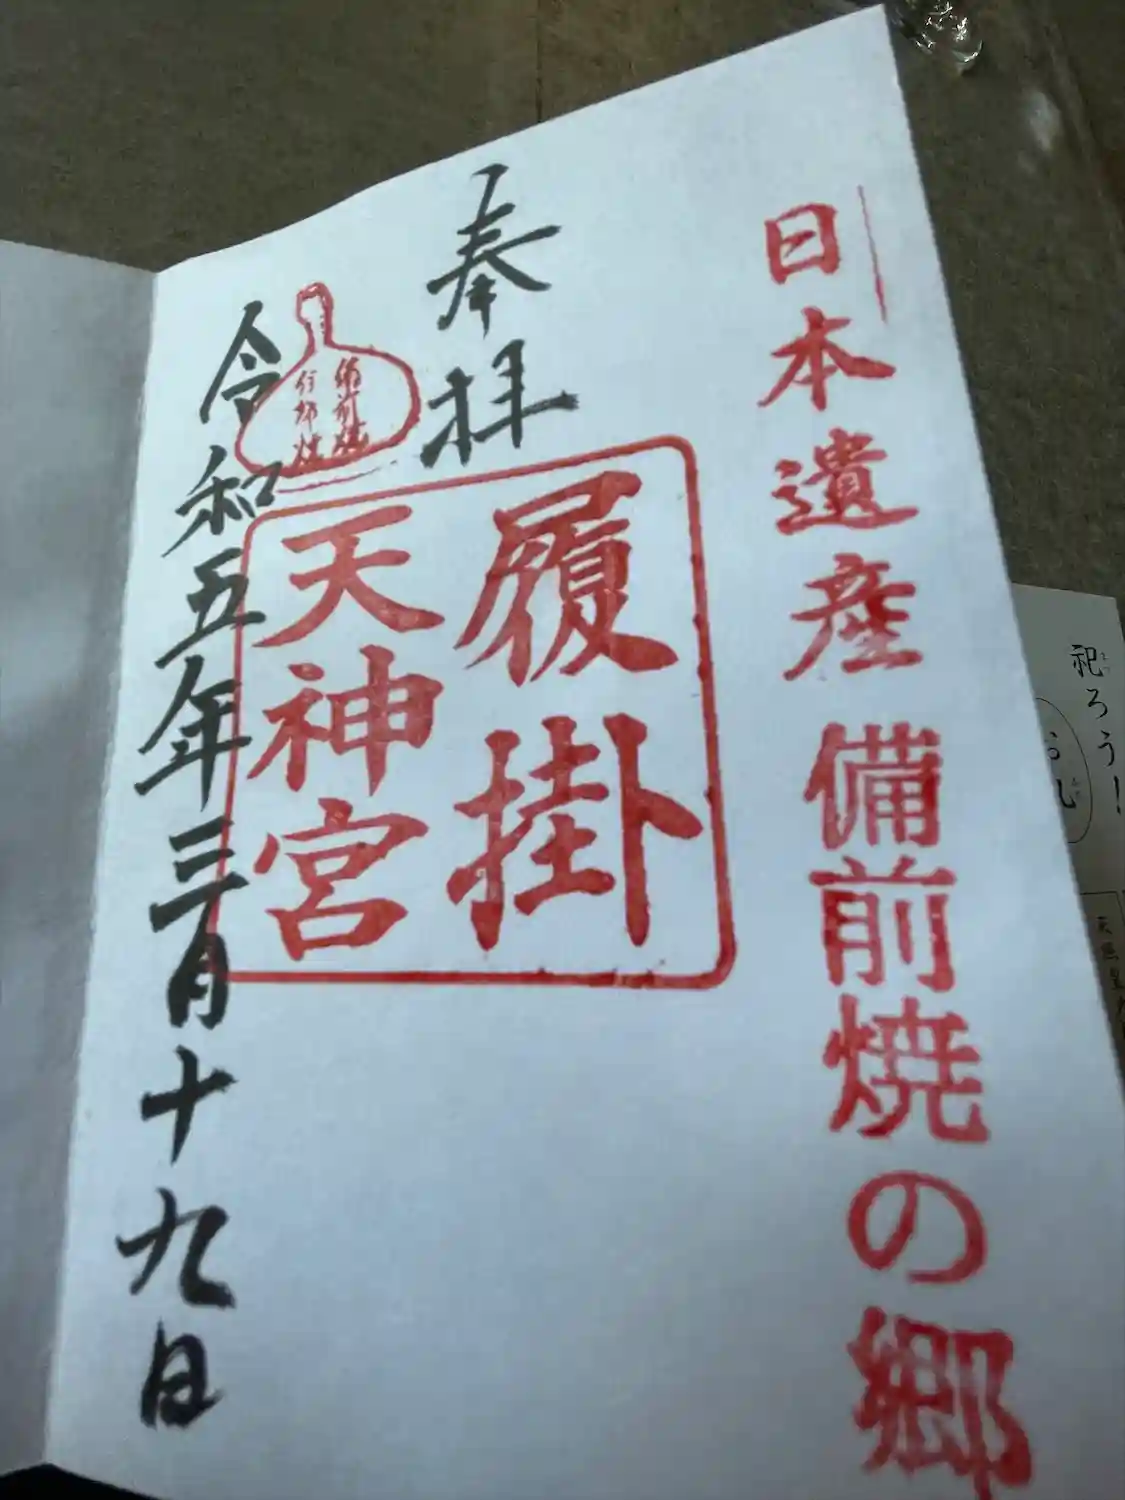 日本遺産 備前焼の郷
奉拝
履掛
天神宮
備前焼
伊部焼
令和五年三月十九日
祀ろう！